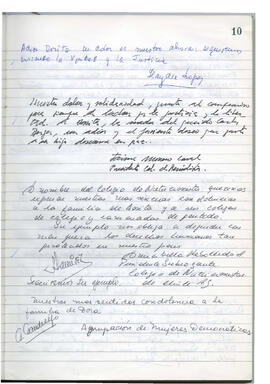 10
Adios Dorita su dolor es nuestro ahora seguiremos
buscando la Verdad y la Justicia
López
Nuestro dolor y solidaridad, junto al compromiso
por la justicia y la liber
tad. A Dorita, la viuda del querido Carlos
Berger, un adiós y el ferviente deseo que junto
a su hijo descanse en paz.
Jaime Moreno
Presidente Col. de Periodistas.
A nombre del Colegio de Nutricionistas queremos
expresar nuestras más sinceras condolencias
a la familia de Dorita y a sus colegas
de colegio y camaradas de partido.
Su ejemplo nos obliga a defender con
más fuerza los derechos humanos tan
pisoteados en nuestro país
Presidente
Colegio de Nutricionistas
de Chile A.G.
Seguiremos su ejemplo
nuestras mas sentidas condolencia a la
familia de Dora
Agrupación de Mujeres Democráticas